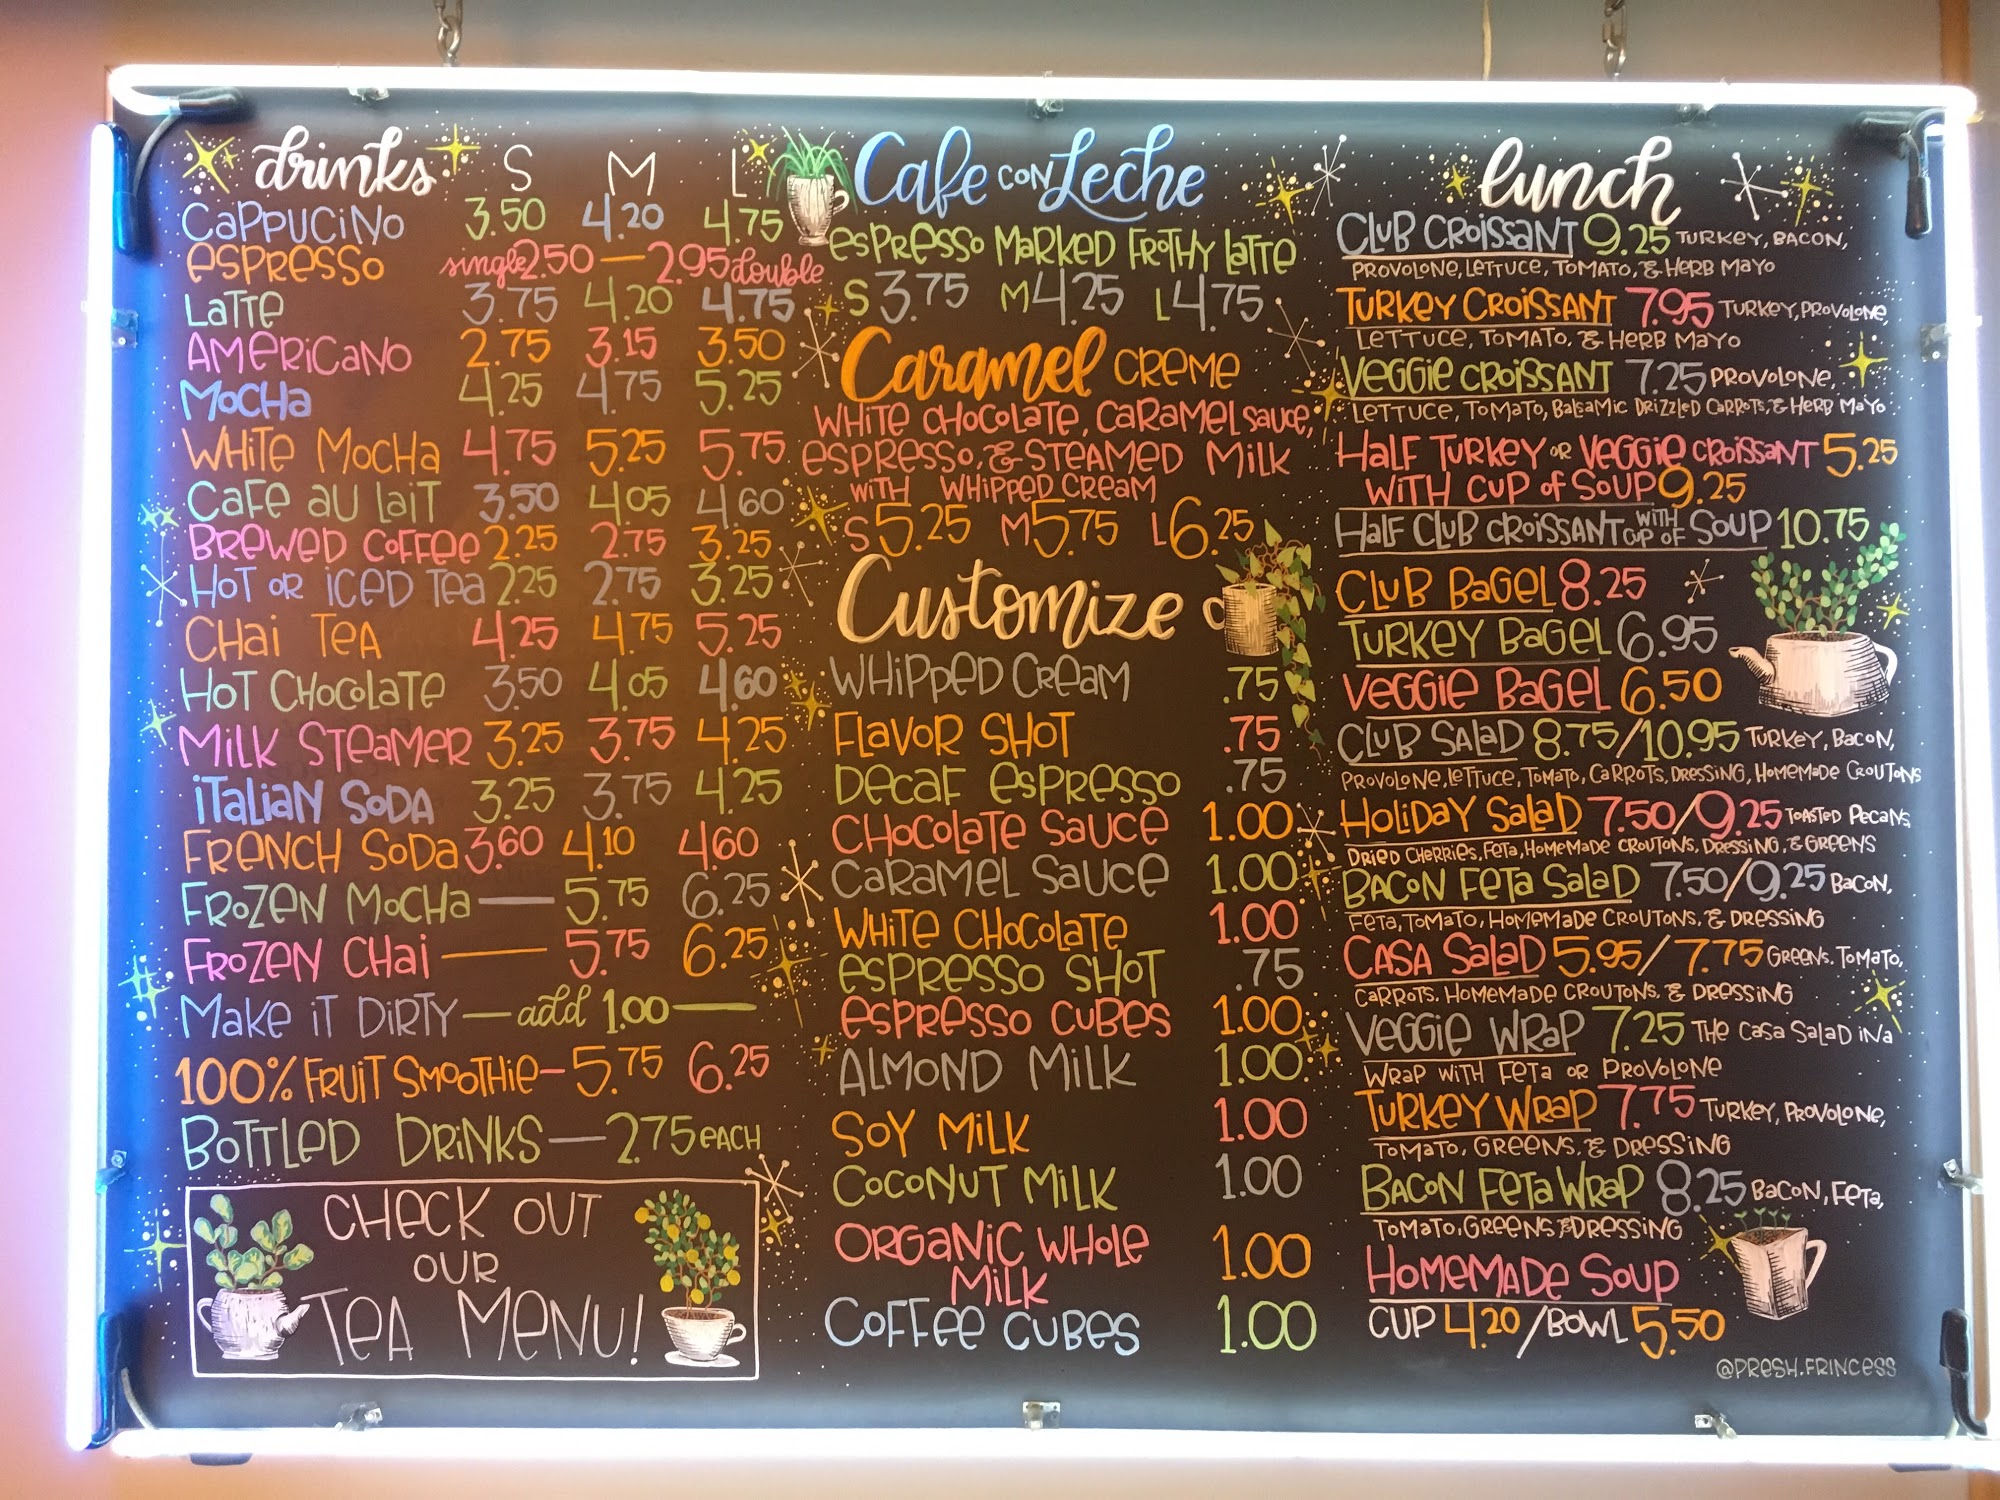 drinks S M L
CAPPUCINO 3.50 4.20 4.75
ESPRESSO single 2.50 — 2.95 double
LATTE 3.75 4.20 4.75
AMERICANO 2.75 3.15 3.50
MOCHA 4.25 4.75 5.25
WHITE MOCHA 4.75 5.25 5.75
CAFE AU LAIT 3.50 4.05 4.60
BREWED COFFEE 2.25 2.75 3.25
HOT OR ICED TEA 2.25 2.75 3.25
CHAI TEA 4.25 4.75 5.25
HOT CHOCOLATE 3.50 4.05 4.60
MILK STEAMER 3.25 3.75 4.25
ITALIAN SODA 3.25 3.75 4.25
FRENCH SODA 3.60 4.10 4.60
FROZEN MOCHA — 5.75 6.25
FROZEN CHAI — 5.75 6.25
MAKE IT DIRTY — add 1.00 —
100% FRUIT SMOOTHIE — 5.75 6.25
BOTTLED DRINKS — 2.75 EACH
CHECK OUT
OUR
TEA MENU!
Cafe CON Leche
ESPRESSO MARKED FROTHY LATTE
S 3.75 M 4.25 L 4.75
Caramel CREME
WHITE CHOCOLATE, CARAMEL SAUCE,
ESPRESSO, & STEAMED MILK
WITH WHIPPED CREAM
S 5.25 M 5.75 L 6.25
Customize
WHIPPED CREAM .75
FLAVOR SHOT .75
DECAF ESPRESSO .75
CHOCOLATE SAUCE 1.00
CARAMEL SAUCE 1.00
WHITE CHOCOLATE 1.00
ESPRESSO SHOT .75
ESPRESSO CUBES 1.00
ALMOND MILK 1.00
SOY MILK 1.00
COCONUT MILK 1.00
ORGANIC WHOLE 1.00
MILK
COFFEE CUBES 1.00
lunch
CLUB CROISSANT 9.25 TURKEY, BACON,
PROVOLONE, LETTUCE, TOMATO, & HERB MAYO
TURKEY CROISSANT 7.95 TURKEY, PROVOLONE,
LETTUCE, TOMATO, & HERB MAYO
VEGGIE CROISSANT 7.25 PROVOLONE,
LETTUCE, TOMATO, BALSAMIC DRIZZLED CARROTS, & HERB MAYO
HALF TURKEY OR VEGGIE CROISSANT 5.25
WITH CUP OF SOUP 9.25
HALF CLUB CROISSANT WITH CUP OF SOUP 10.75
CLUB BAGEL 8.25
TURKEY BAGEL 6.95
VEGGIE BAGEL 6.50
CLUB SALAD 8.75/10.95 TURKEY, BACON,
PROVOLONE, LETTUCE, TOMATO, CARROTS, DRESSING, HOMEMADE CROUTONS
HOLIDAY SALAD 7.50/9.25 TOASTED PECANS,
DRIED CHERRIES, FETA, HOMEMADE CROUTONS, DRESSING, & GREENS
BACON FETA SALAD 7.50/9.25 BACON,
FETA, TOMATO, HOMEMADE CROUTONS, & DRESSING
CASA SALAD 5.95/7.75 GREENS, TOMATO,
CARROTS, HOMEMADE CROUTONS, & DRESSING
VEGGIE WRAP 7.25 THE CASA SALAD IN A
WRAP WITH FETA OR PROVOLONE
TURKEY WRAP 7.75 TURKEY, PROVOLONE,
TOMATO, GREENS, & DRESSING
BACON FETA WRAP 8.25 BACON, FETA,
TOMATO, GREENS, & DRESSING
HOMEMADE SOUP
CUP 4.20 / BOWL 5.50
@PRESH.FRINCESS